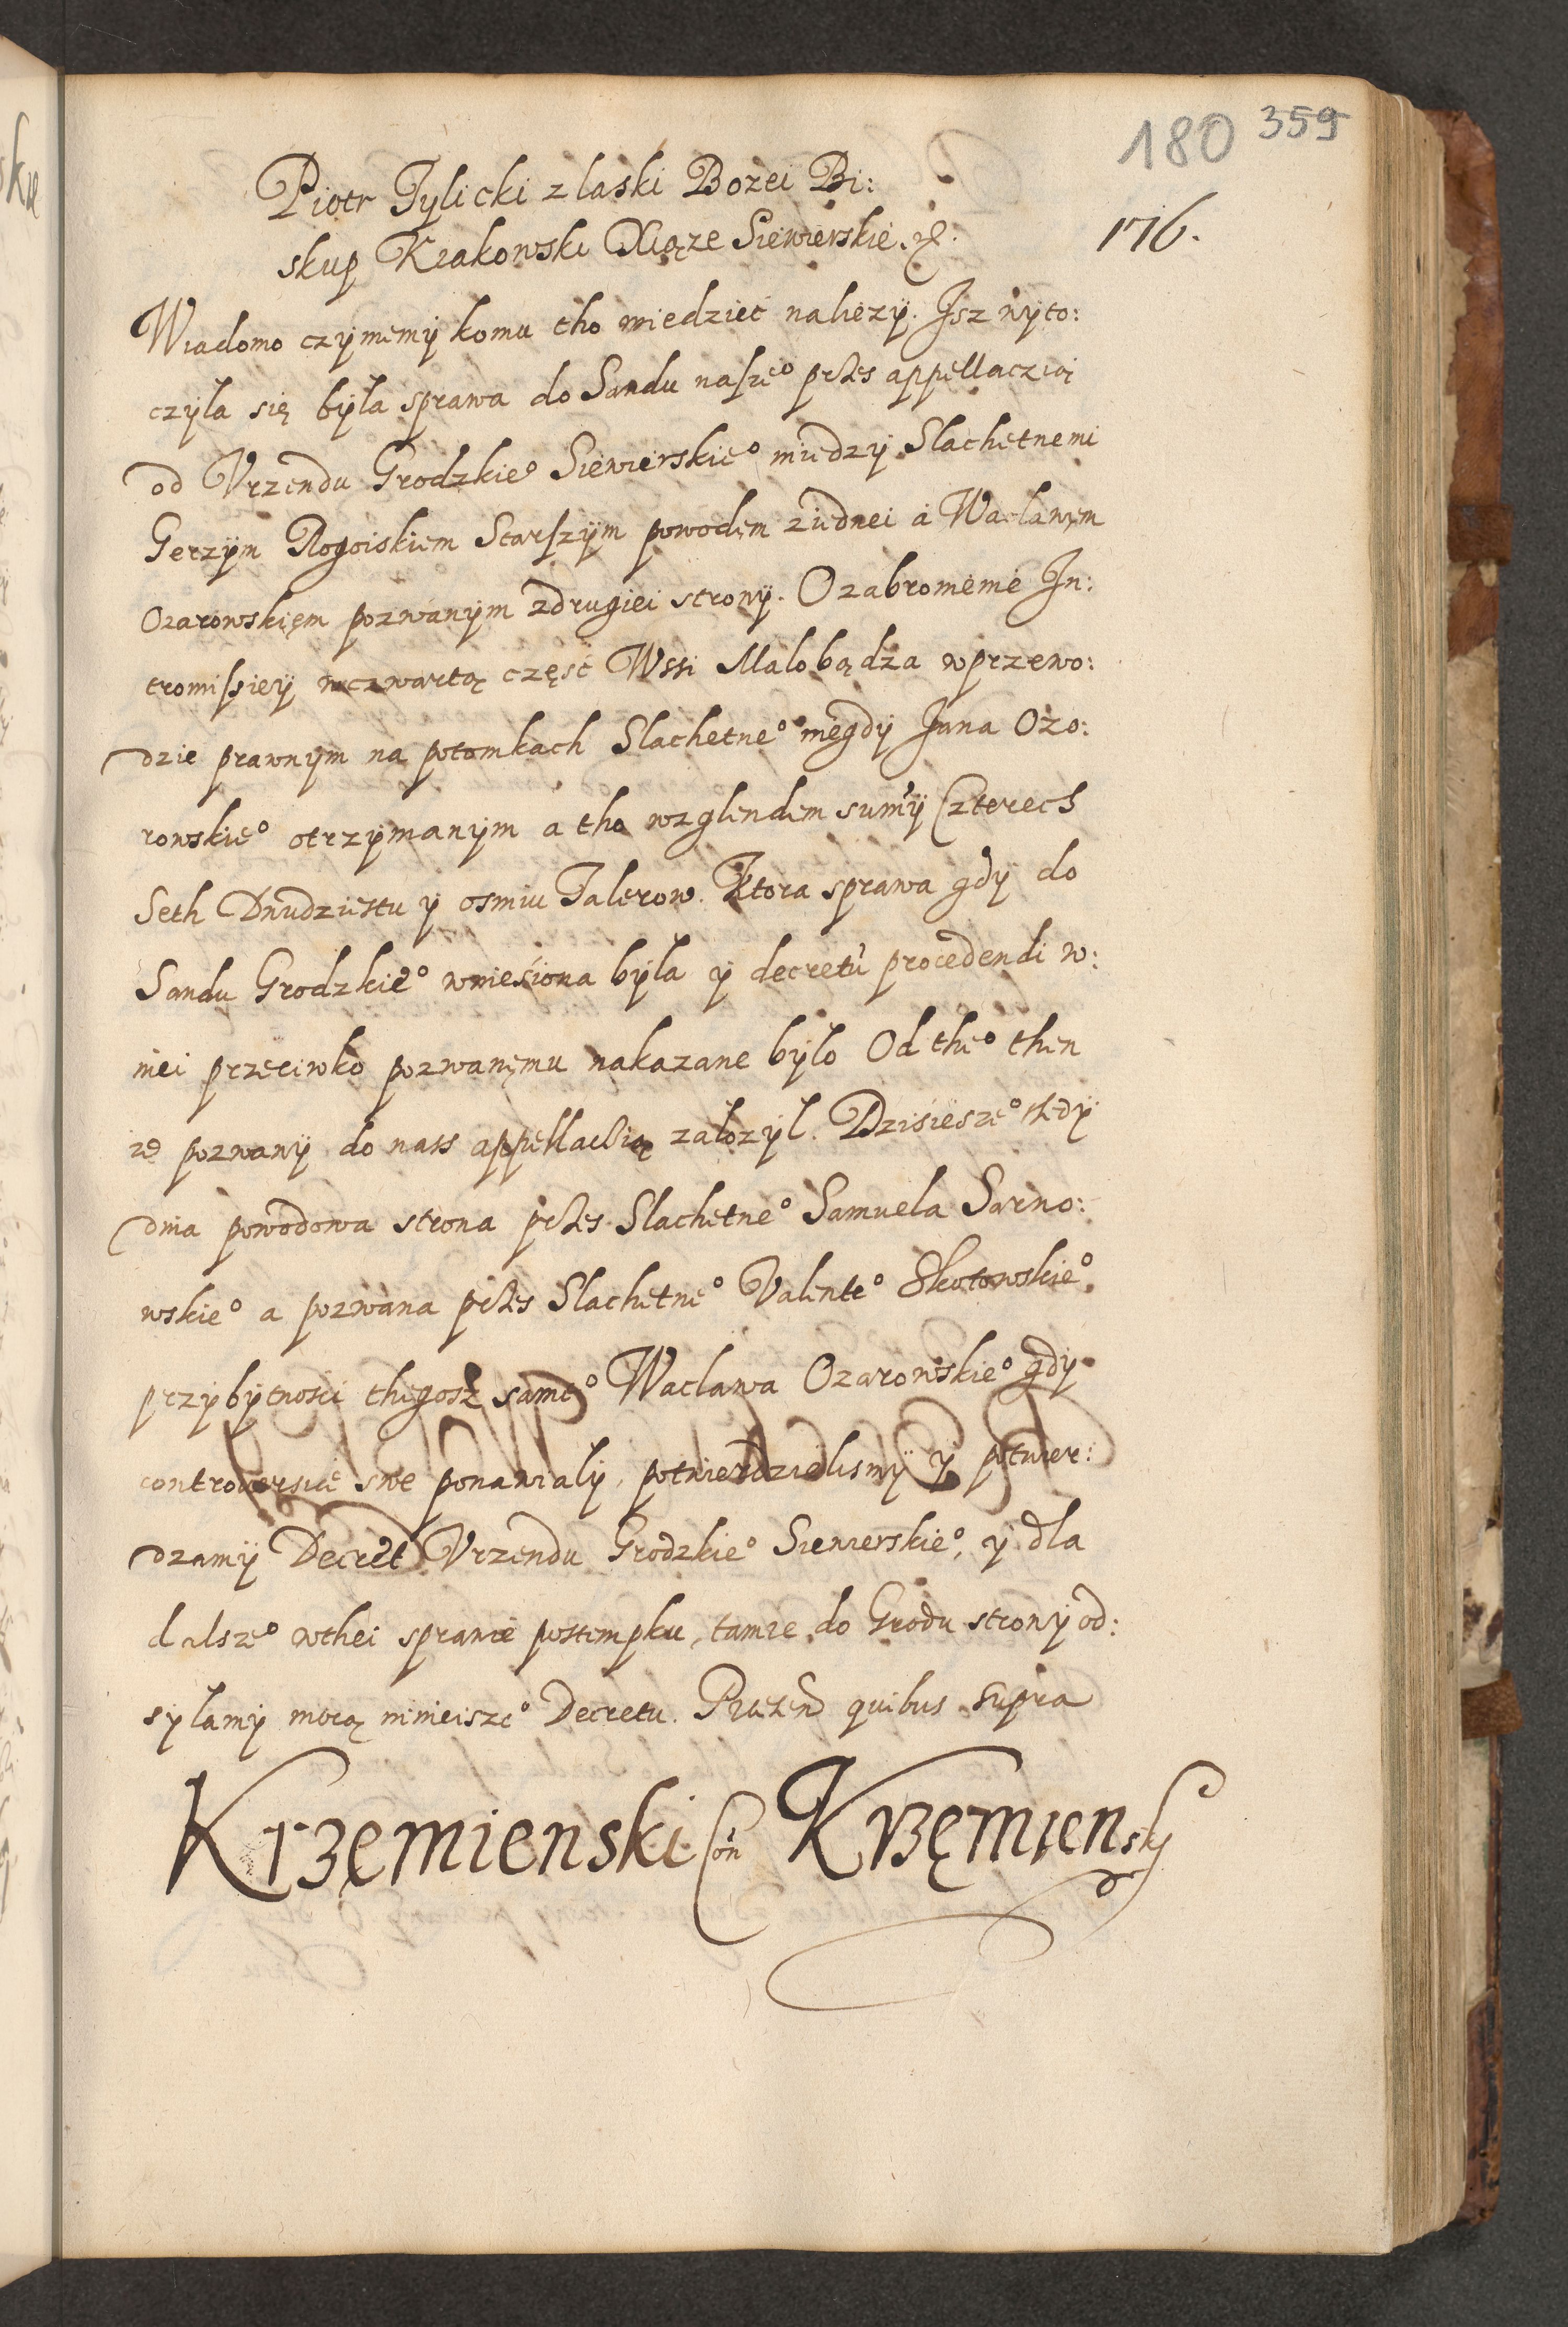 180 359
176.
Piotr Tylicki z laski Bozei Bi:
skup Krakowski Xiąze Siewierskie etc.
Wiadomo czynimy komu tho wiedziec naliezy. Isz wyto:
czyla się byla sprawa do Sandu nasze° przes appellaczią
od Vrzendu Grodzkie° Siewierskie° miedzy Slachetnemi
Gerzym Rogoiskiem Starszym powodem ziednei a Waclawem
Ozarowskiem pozwanym z drugiei strony. O zabronienie In:
tromissiey w czwartą częsć Wssi Malobądza w przewo:
dzie prawnym na potomkach Slachetne° niegdy Jana Ozo:
rowskie° otrzymanym a tho wzglendem sumy Czterech
Seth Dwudziestu y osmiu Talerow. Ktora sprawa gdy do
Sandu Grodzkie° wniesiona byla y decretu procedendi w:
niei przeciwko pozwanemu nakazane bylo Od the° then
ze pozwany do nass appellacią zalozyl. Dzisiesze° tedy
dnia powodowa strona przes Slachetne° Samuela Sarno:
wskie° a pozwana przes Slachetne° Valente° Skotowskie°
przy bytnosci thegosz same° Waclawa Ozarowskie° gdy
controversie swe ponawialy, potwierdzielismy y potwier:
dzamy Decret Vrzendu Grodzkie° Siewierskie°, y dla
dalsze° wthei sprawie postempku, tamze do Grodu strony od:
sylamy mocą ninieisze° Decretu. Praesen quibus supra
Krzęmienski Con Krzęmiensky